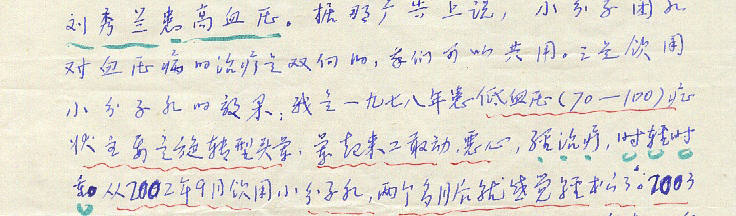 刘秀兰患高血压。据那广告上说,小分子团乳
对血压病的治疗是双向的,我们可以共用。三是饮用
小分子乳的效果:我是一九七八年患低血压(70—100)症
状主要是旋转型头晕,晕起来不敢动,恶心,经治疗,时轻时
重。从2002年9月饮用小分子乳,两个多月后就感觉轻松了。2003